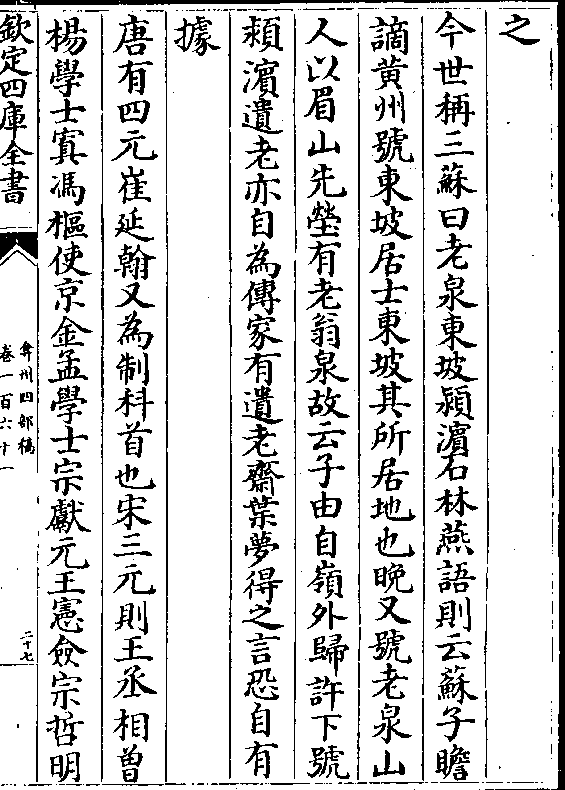 之
今世稱三蘇曰老泉東坡潁濵石林燕語則云蘇子瞻
謫黄州號東坡居士東坡其所居地也晩又號老泉山
人以眉山先塋有老翁泉故云子由自嶺外歸許下號
潁濵遺老亦自為傳家有遺老齋葉夢得之言恐自有
據
唐有四元崔延翰又為制科首也宋三元則王丞相曽
楊學士寘馮樞使京金孟學士宗獻元王憲僉宗哲明
欽定四庫全書
弇州四部稿
卷一百六十一
二十七